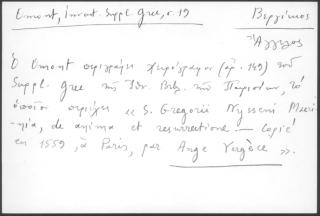 Omont, Invent. Suppl. Grec, σ. 19
Βεργίκιος
Ἄγγελος
Ὁ Omont περιγράφει χειρόγραφον (ἀρ. 149) τοῦ
Suppl. Grec τῆς Ἐθν. Βιβ. τῶν Παρισίων, τὸ
ὁποῖον περιέχει « S. Gregorii Nysseni Macri-
nia, de anima et resurrectione. — Copié
en 1559, à Paris, par Ange Vergèce ».